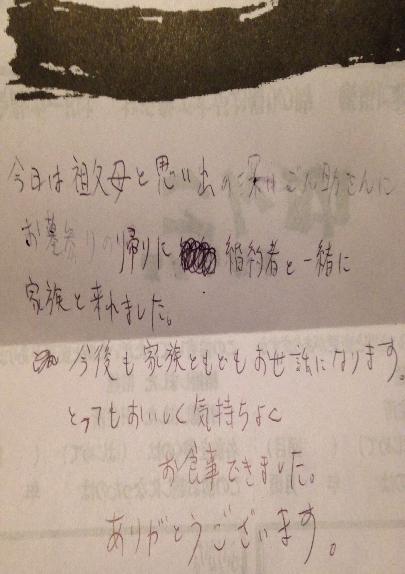 今日は祖父母と思い出の深いごん助さんに
お墓参りの帰りに 婚約者と一緒に
家族と来れました。
今後も家族ともどもお世話になります。
とってもおいしく気持ちよく
お食事できました。
ありがとうございます。